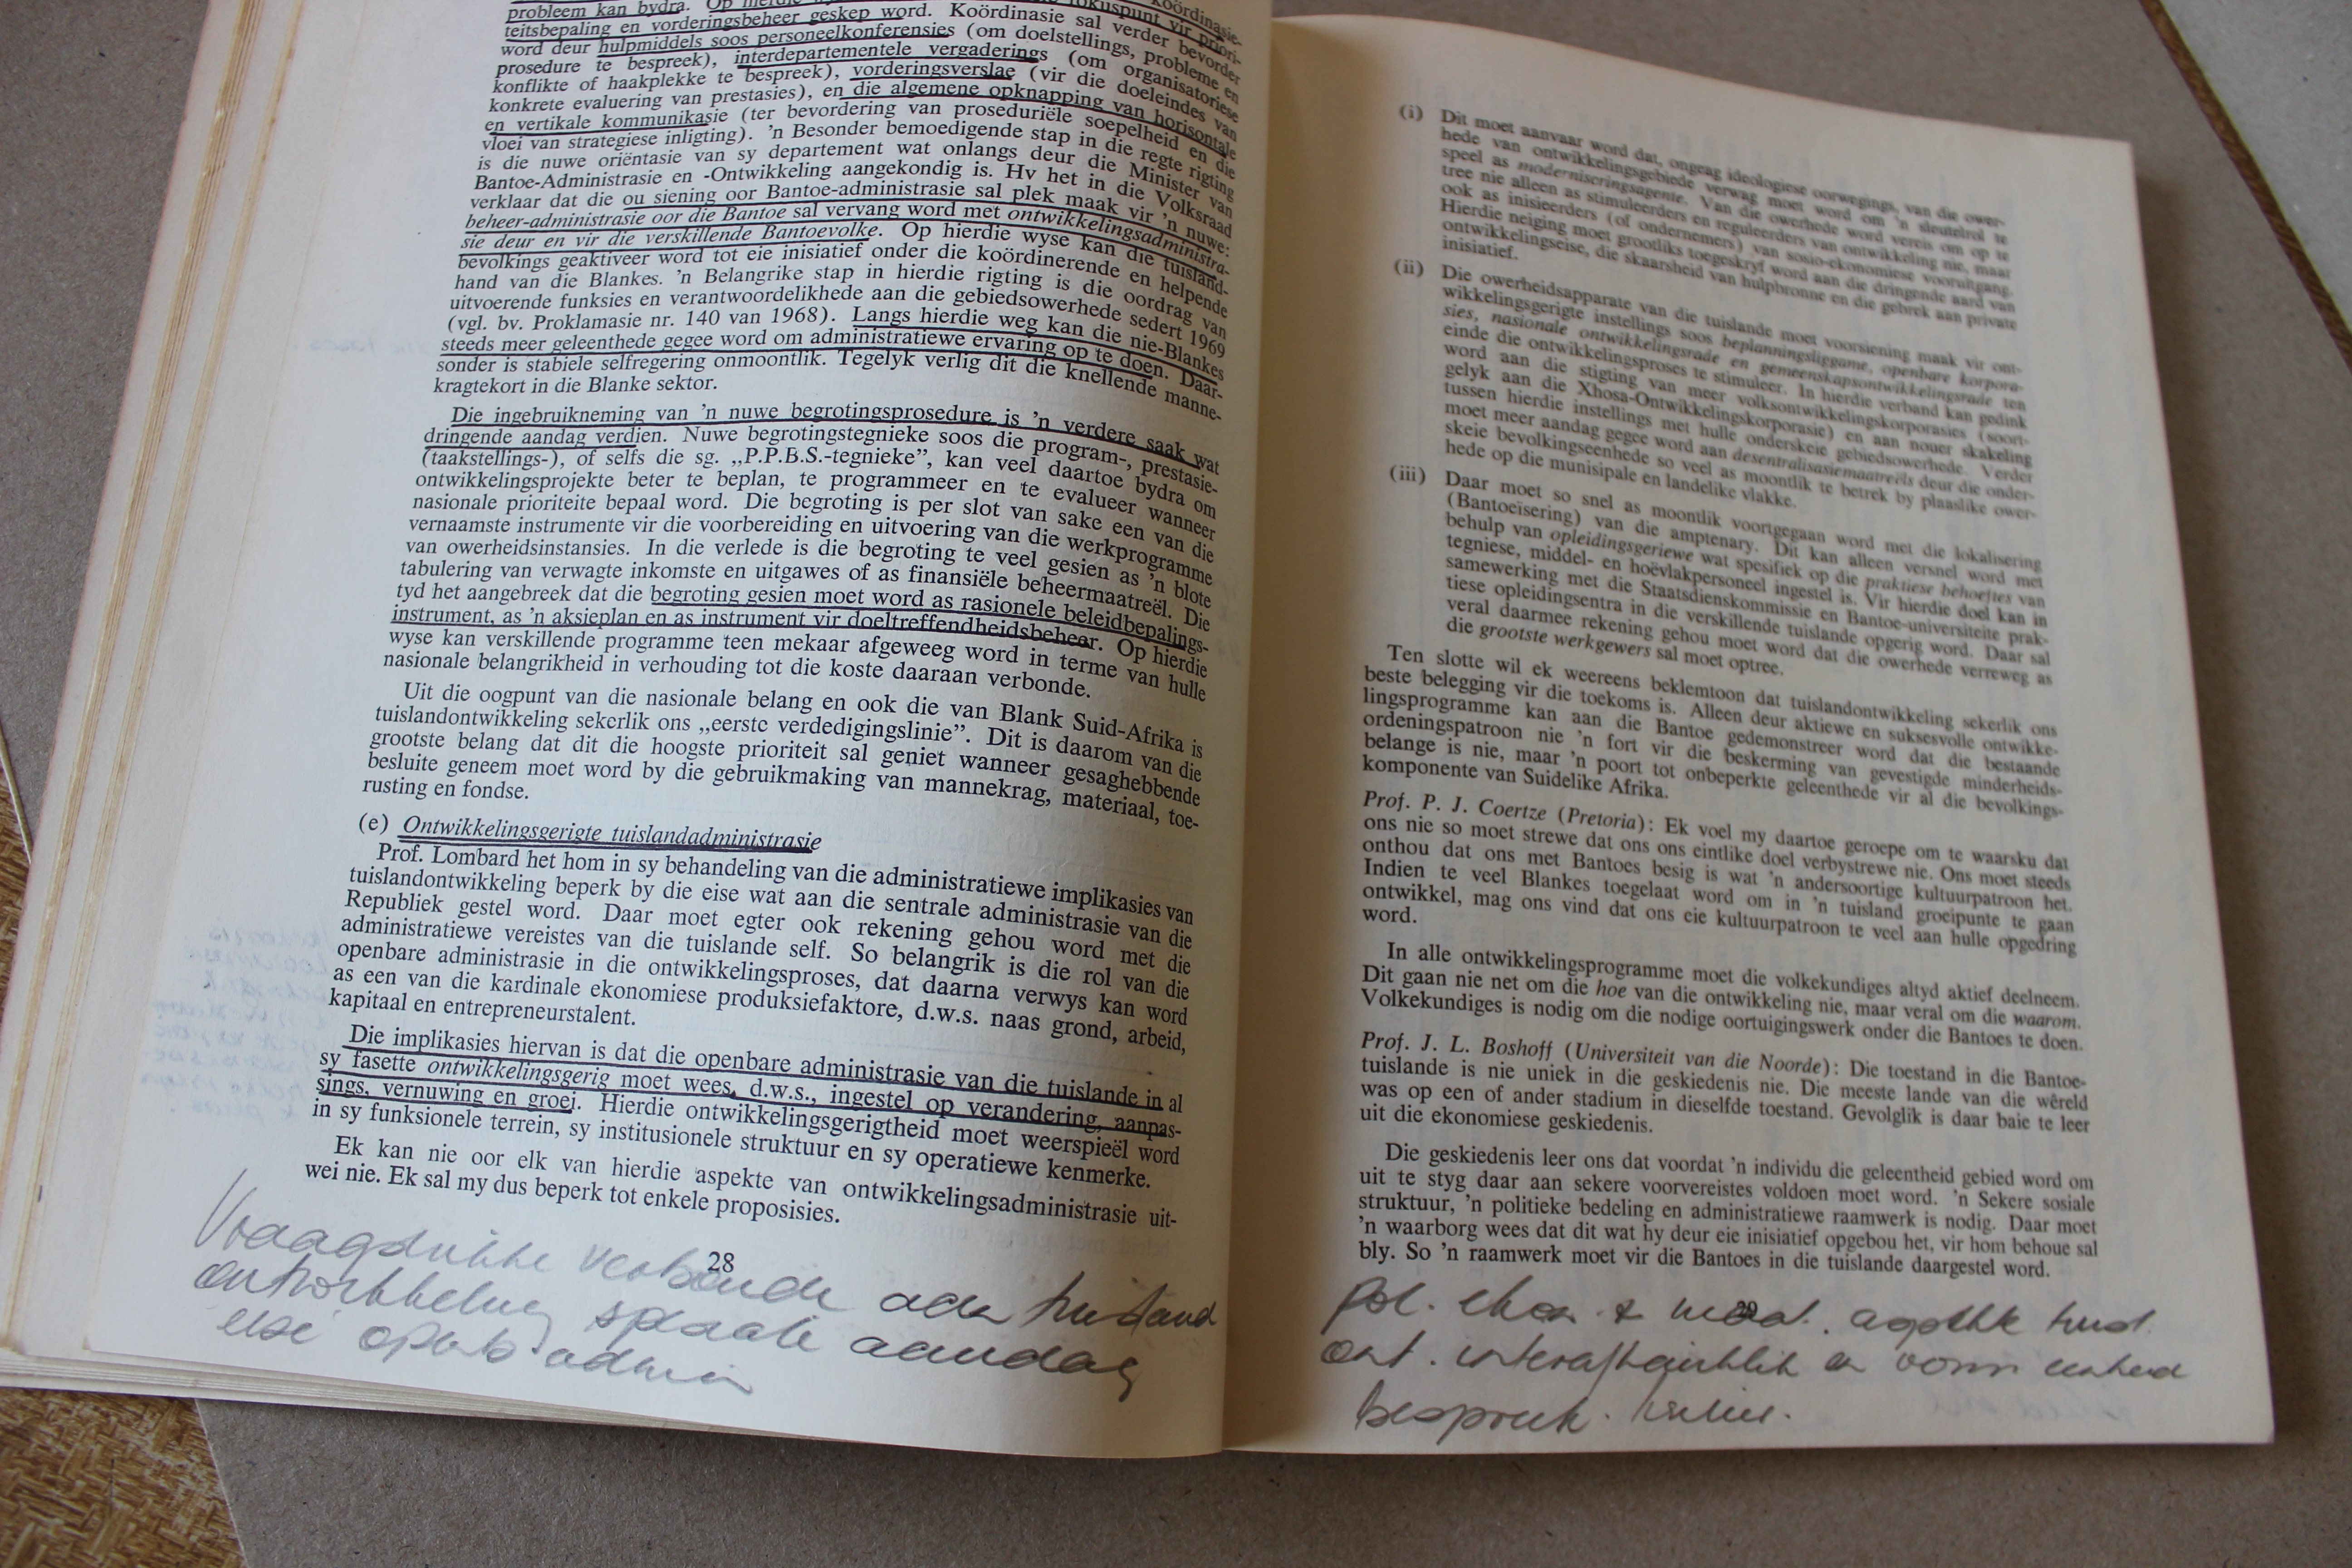 probleem kan bydra. Op
teitsbepaling en vorderingsbeheer geskep word. Koördinasie sal verder bevorder
word deur hulpmiddels soos personeelkonferensies (om doelstellings, probleme en
prosedure te bespreek), interdepartementele vergaderings (om organisatoriese
konflikte of haakplekke te bespreek), vorderingsverslae (vir die doeleindes van
konkrete evaluering van prestasies), en die algemene opknapping van horisontale
en vertikale kommunikasie (ter bevordering van proseduriële soepelheid en die
vloei van strategiese inligting). 'n Besonder bemoedigende stap in die regte rigting
is die nuwe oriëntasie van sy departement wat onlangs deur die Minister van
Bantoe-Administrasie en -Ontwikkeling aangekondig is. Hy het in die Volksraad
verklaar dat die ou siening oor Bantoe-administrasie sal plek maak vir 'n nuwe:
beheer-administrasie oor die Bantoe sal vervang word met ontwikkelingsadministra-
sie deur en vir die verskillende Bantoevolke. Op hierdie wyse kan die tuisland-
bevolkings geaktiveer word tot eie inisiatief onder die koördinerende en helpende
hand van die Blankes. 'n Belangrike stap in hierdie rigting is die oordrag van
uitvoerende funksies en verantwoordelikhede aan die gebiedsowerhede sedert 1969
(vgl. bv. Proklamasie nr. 140 van 1968). Langs hierdie weg kan die nie-Blankes
steeds meer geleenthede gegee word om administratiewe ervaring op te doen. Daar-
sonder is stabiele selfregering onmoontlik. Tegelyk verlig dit die knellende manne-
kragtekort in die Blanke sektor.
Die ingebruikneming van 'n nuwe begrotingsprosedure is 'n verdere saak wat
dringende aandag verdien. Nuwe begrotingstegnieke soos die program-, prestasie-
(taakstellings-), of selfs die sg. „P.P.B.S.-tegnieke”, kan veel daartoe bydra om
ontwikkelingsprojekte beter te beplan, te programmeer en te evalueer wanneer
nasionale prioriteite bepaal word. Die begroting is per slot van sake een van die
vernaamste instrumente vir die voorbereiding en uitvoering van die werkprogramme
van owerheidsinstansies. In die verlede is die begroting te veel gesien as 'n blote
tabulering van verwagte inkomste en uitgawes of as finansiële beheermaatreël. Die
tyd het aangebreek dat die begroting gesien moet word as rasionele beleidbepalings-
instrument, as 'n aksieplan en as instrument vir doeltreffendheidsbeheer. Op hierdie
wyse kan verskillende programme teen mekaar afgeweeg word in terme van hulle
nasionale belangrikheid in verhouding tot die koste daaraan verbonde.
Uit die oogpunt van die nasionale belang en ook die van Blank Suid-Afrika is
tuislandontwikkeling sekerlik ons „eerste verdedigingslinie”. Dit is daarom van die
grootste belang dat dit die hoogste prioriteit sal geniet wanneer gesaghebbende
besluite geneem moet word by die gebruikmaking van mannekrag, materiaal, toe-
rusting en fondse.
(e) Ontwikkelingsgerigte tuislandadministrasie
Prof. Lombard het hom in sy behandeling van die administratiewe implikasies van
tuislandontwikkeling beperk by die eise wat aan die sentrale administrasie van die
Republiek gestel word. Daar moet egter ook rekening gehou word met die
administratiewe vereistes van die tuislande self. So belangrik is die rol van die
openbare administrasie in die ontwikkelingsproses, dat daarna verwys kan word
as een van die kardinale ekonomiese produksiefaktore, d.w.s. naas grond, arbeid,
kapitaal en entrepreneurstalent.
Die implikasies hiervan is dat die openbare administrasie van die tuislande in al
sy fasette ontwikkelingsgerig moet wees, d.w.s., ingestel op verandering, aanpas-
sings, vernuwing en groei. Hierdie ontwikkelingsgerigtheid moet weerspieël word
in sy funksionele terrein, sy institusionele struktuur en sy operatiewe kenmerke.
Ek kan nie oor elk van hierdie aspekte van ontwikkelingsadministrasie uit-
wei nie. Ek sal my dus beperk tot enkele proposisies.
28
Vraagstukke verbonde aan tuisland
ontwikkeling spesiale aandag
admin
(i) Dit moet aanvaar word dat, ongeag ideologiese oorwegings, van die ower-
hede van ontwikkelingsgebiede verwag moet word om 'n sleutelrol te
speel as moderniseringsagente. Van die owerhede word vereis om op te
tree nie alleen as stimuleerders en reguleerders van ontwikkeling nie, maar
ook as inisieerders (of ondernemers) van sosio-ekonomiese vooruitgang.
Hierdie neiging moet grootliks toegeskryf word aan die dringende aard van
ontwikkelingseise, die skaarsheid van hulpbronne en die gebrek aan private
inisiatief.
(ii) Die owerheidsapparate van die tuislande moet voorsiening maak vir ont-
wikkelingsgerigte instellings soos beplanningsliggame, openbare korpora-
sies, nasionale ontwikkelingsrade en gemeenskapsontwikkelingsrade ten
einde die ontwikkelingsproses te stimuleer. In hierdie verband kan gedink
word aan die stigting van meer volksontwikkelingskorporasies (soort-
gelyk aan die Xhosa-Ontwikkelingskorporasie) en aan nouer skakeling
tussen hierdie instellings met hulle onderskeie gebiedsowerhede. Verder
moet meer aandag gegee word aan desentralisasiemaatreëls deur die onder-
skeie bevolkingseenhede so veel as moontlik te betrek by plaaslike ower-
hede op die munisipale en landelike vlakke.
(iii) Daar moet so snel as moontlik voortgegaan word met die lokalisering
(Bantoeïsering) van die amptenary. Dit kan alleen versnel word met
behulp van opleidingsgeriewe wat spesifiek op die praktiese behoeftes van
tegniese, middel- en hoëvlakpersoneel ingestel is. Vir hierdie doel kan in
samewerking met die Staatsdienskommissie en Bantoe-universiteite prak-
tiese opleidingsentra in die verskillende tuislande opgerig word. Daar sal
veral daarmee rekening gehou moet word dat die owerhede verreweg as
die grootste werkgewers sal moet optree.
Ten slotte wil ek weereens beklemtoon dat tuislandontwikkeling sekerlik ons
beste belegging vir die toekoms is. Alleen deur aktiewe en suksesvolle ontwikke-
lingsprogramme kan aan die Bantoe gedemonstreer word dat die bestaande
ordeningspatroon nie 'n fort vir die beskerming van gevestigde minderheids-
belange is nie, maar 'n poort tot onbeperkte geleenthede vir al die bevolkings-
komponente van Suidelike Afrika.
Prof. P. J. Coertze (Pretoria): Ek voel my daartoe geroepe om te waarsku dat
ons nie so moet strewe dat ons ons eintlike doel verbystrewe nie. Ons moet steeds
onthou dat ons met Bantoes besig is wat 'n andersoortige kultuurpatroon het.
Indien te veel Blankes toegelaat word om in 'n tuisland groeipunte te gaan
ontwikkel, mag ons vind dat ons eie kultuurpatroon te veel aan hulle opgedring
word.
In alle ontwikkelingsprogramme moet die volkekundiges altyd aktief deelneem.
Dit gaan nie net om die hoe van die ontwikkeling nie, maar veral om die waarom.
Volkekundiges is nodig om die nodige oortuigingswerk onder die Bantoes te doen.
Prof. J. L. Boshoff (Universiteit van die Noorde): Die toestand in die Bantoe-
tuislande is nie uniek in die geskiedenis nie. Die meeste lande van die wêreld
was op een of ander stadium in dieselfde toestand. Gevolglik is daar baie te leer
uit die ekonomiese geskiedenis.
Die geskiedenis leer ons dat voordat 'n individu die geleentheid gebied word om
uit te styg daar aan sekere voorvereistes voldoen moet word. 'n Sekere sosiale
struktuur, 'n politieke bedeling en administratiewe raamwerk is nodig. Daar moet
'n waarborg wees dat dit wat hy deur eie inisiatief opgebou het, vir hom behoue sal
bly. So 'n raamwerk moet vir die Bantoes in die tuislande daargestel word.
Pol.
ont. interafhanklik en vorm eenheid
bespreek.